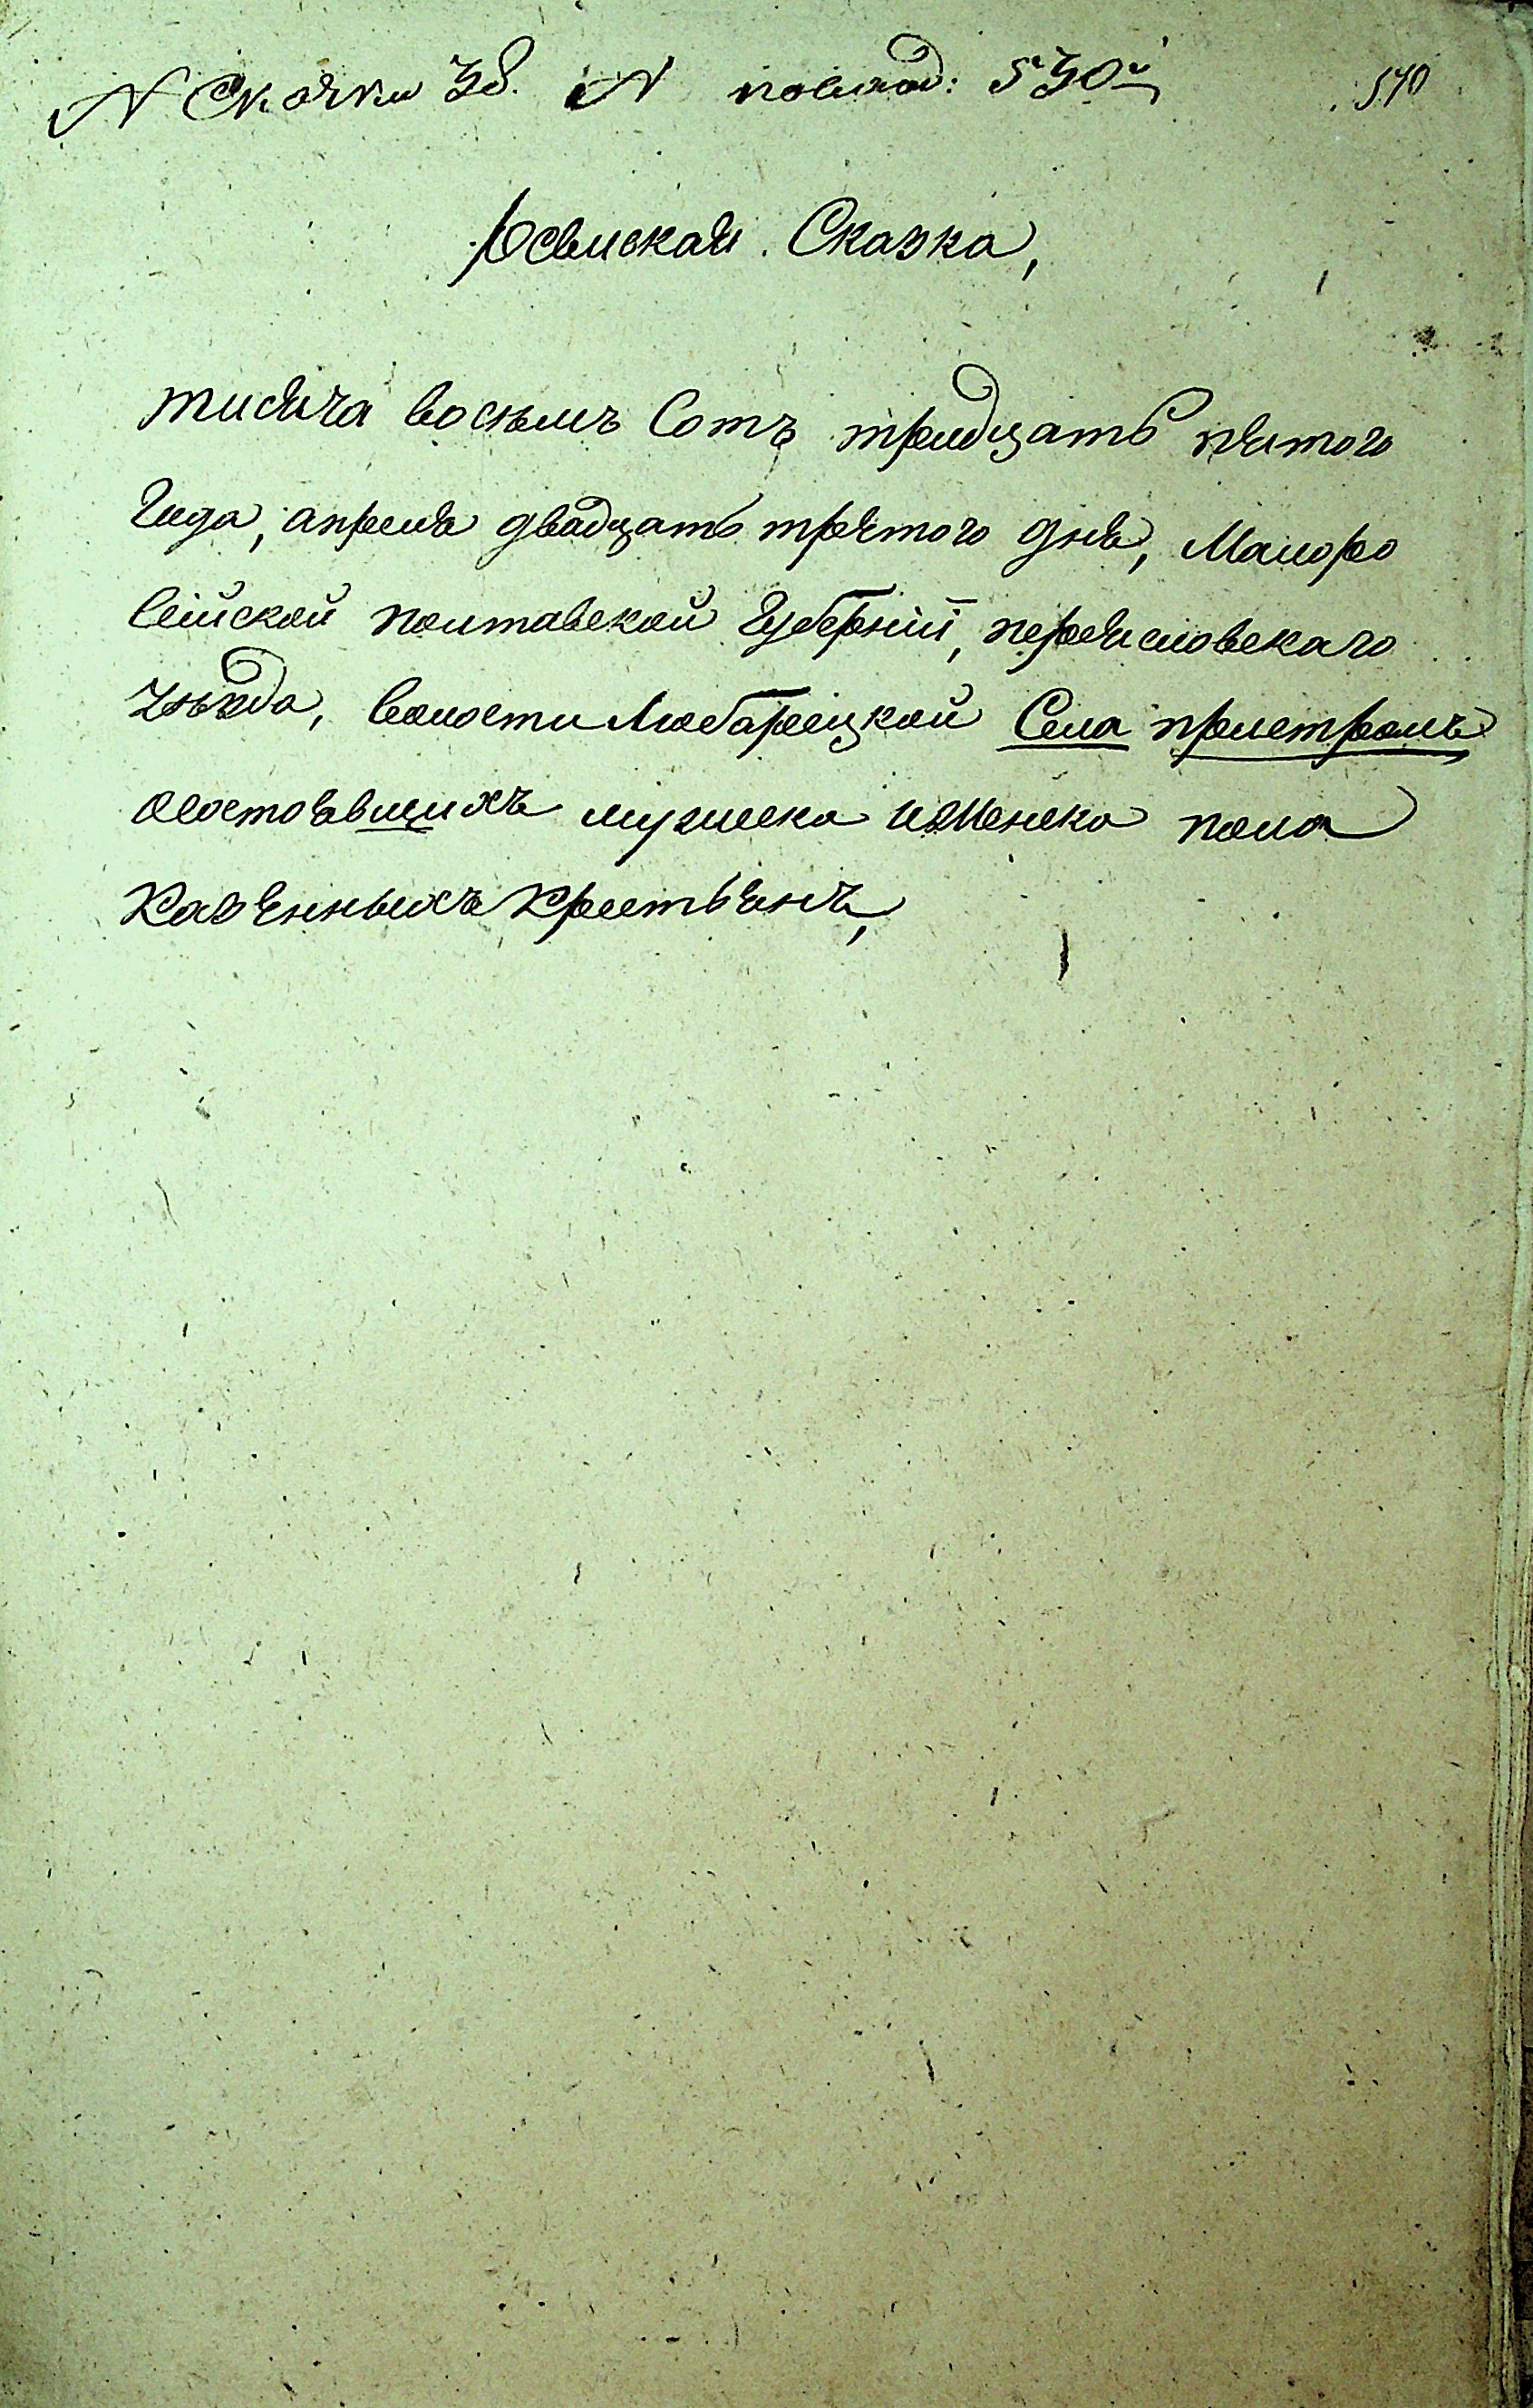 N Скаски 38. N повклад: 530й 540
Ревиская Сказка,
тисяча восемъ Сотъ тридцать пятого
Года, апреля двадцать третого дня, Малоро
сейской полтавской Губерніи, переясловскаго
уезда, волости Любарецкой Села пристромъ
осостоявщихъ мужеска иженска пола
казенныхъ крестьянъ,